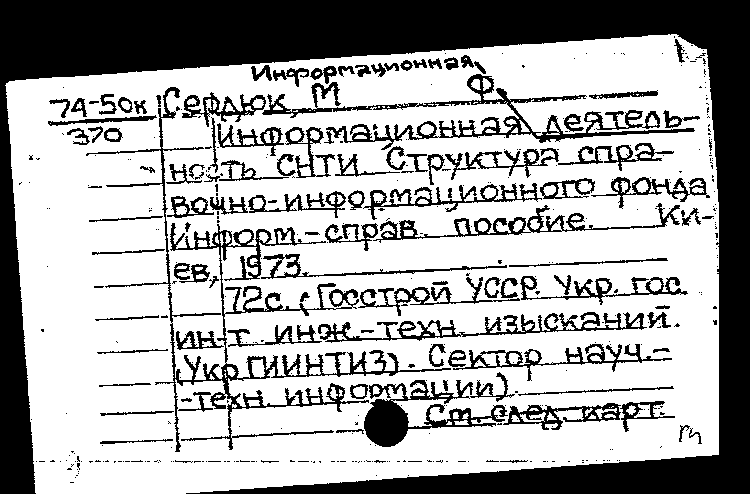 Информационная
74-50к Сердюк, М Ф.
370 Информационная деятель-
ность СНТИ. Структура спра-
вочно-информационного фонда
Информ.-справ. пособие. Ки-
ев, 1973.
72с. (Госстрой УССР. Укр. гос.
ин-т инж.-техн. изысканий.
(УкрГИИНТИЗ). Сектор науч.-
-техн. информации)
См. след. карт.